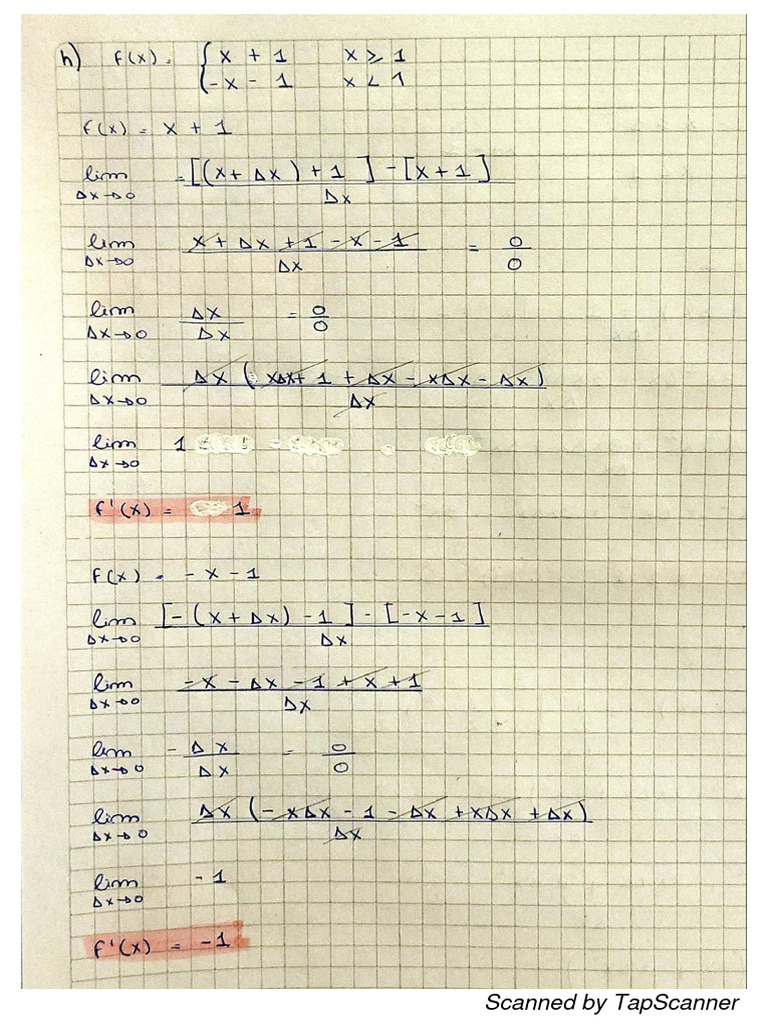 h) f(x) = { x + 1 x ≥ 1
-x - 1 x < 1
f(x) = x + 1
lim Δx→0 = [(x + Δx) + 1] - [x + 1] / Δx
lim Δx→0 x + Δx + 1 - x - 1 / Δx = 0/0
lim Δx→0 Δx / Δx = 0/0
lim Δx→0 Δx (xΔx + 1 + Δx - xΔx - Δx) / Δx
lim Δx→0 1
f'(x) = 1
f(x) = - x - 1
lim Δx→0 [- (x + Δx) - 1] - [-x - 1] / Δx
lim Δx→0 -x - Δx - 1 + x + 1 / Δx
lim Δx→0 - Δx / Δx = 0/0
lim Δx→0 Δx (- xΔx - 1 - Δx + xΔx + Δx) / Δx
lim Δx→0 -1
f'(x) = -1
Scanned by TapScanner